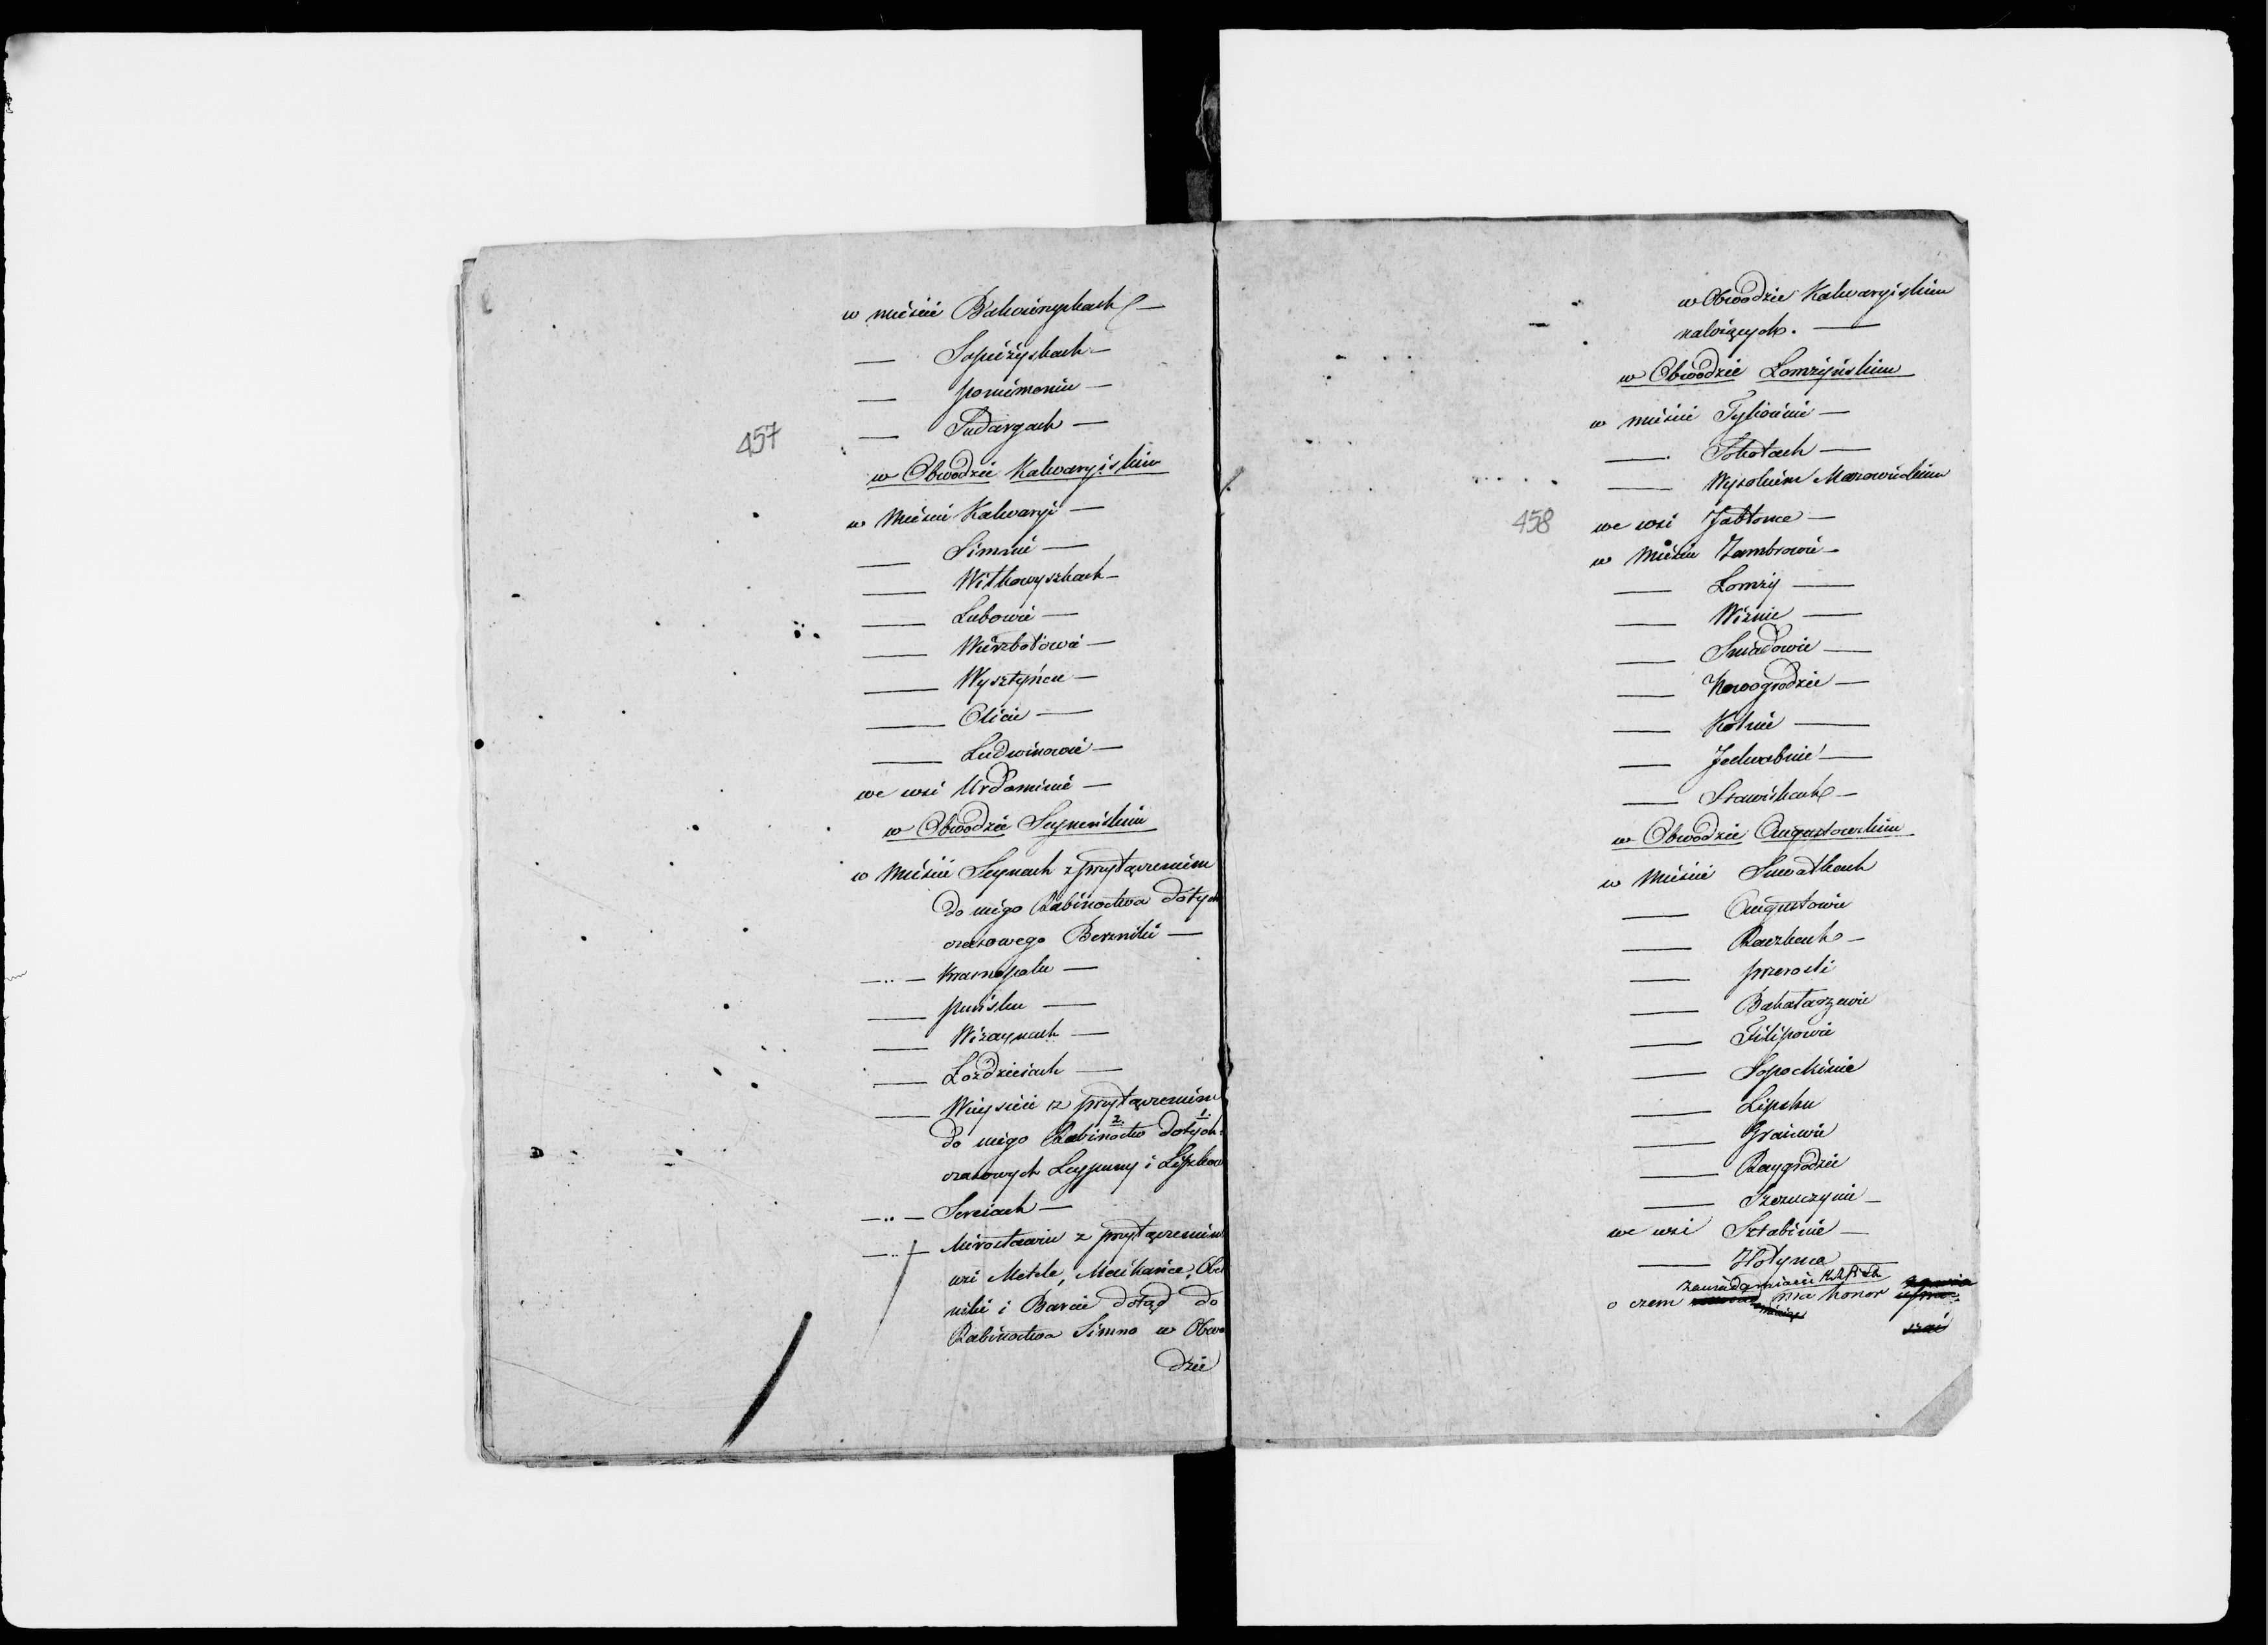 457
w mieście Balwierzyszkach —
— Sapieżyszkach —
— Poniemoniu —
— Sudargach —
w Obwodzie Kalwaryiskim
w Mieście Kalwaryi —
— Simnie —
— Wiłkowyszkach —
— Lubowie —
— Wierzbołowie —
— Wysztyńcu —
— Olicie —
— Ludwinowie —
we wsi Urdominie —
w Obwodzie Seyneńskim
w Mieście Seynach z przyłączeniem
do niego Rabinostwa dotych
czasowego Berzniki —
— " — Krasnopolu —
— Puńsku —
— Wiżaynach —
— Łoździeiach —
— Wieysieie z przyłączeniem
do niego Rabinostw 2. dotych- 1.
czasowych Leypuny i Liszkow
— " — Sereiach —
— " — Mirosławiu z przyłączeniem
wsi Metele,
niki i Barcie dotąd do
Rabinostwa Simno w Obwo
dzie
458
w Obwodzie Kalwaryiskim
należących. —
w Obwodzie Łomżyńskim
w mieście Tykocinie —
— Sokołach —
— Wysokiem Mazowieckim
we wsi Jabłonce —
w Mieście Zambrowie —
— Łomży —
— Wiznie —
— Sniadowie —
— Nowogrodzie —
— Kolnie —
— Jedwabnie —
— Stawiskach —
w Obwodzie Augustowskim
w Mieście Suwałkach
— Augustowie
— Raczkach —
— Przerosli
— Bakałarzewie
— Filipowie
— Sopockinie
— Lipsku
— Graiewie
— Raygrodzie
— Szczuczynie —
we wsi Sztabinie —
— Hołynce
zawiadomienie
o czem ma honor
szać